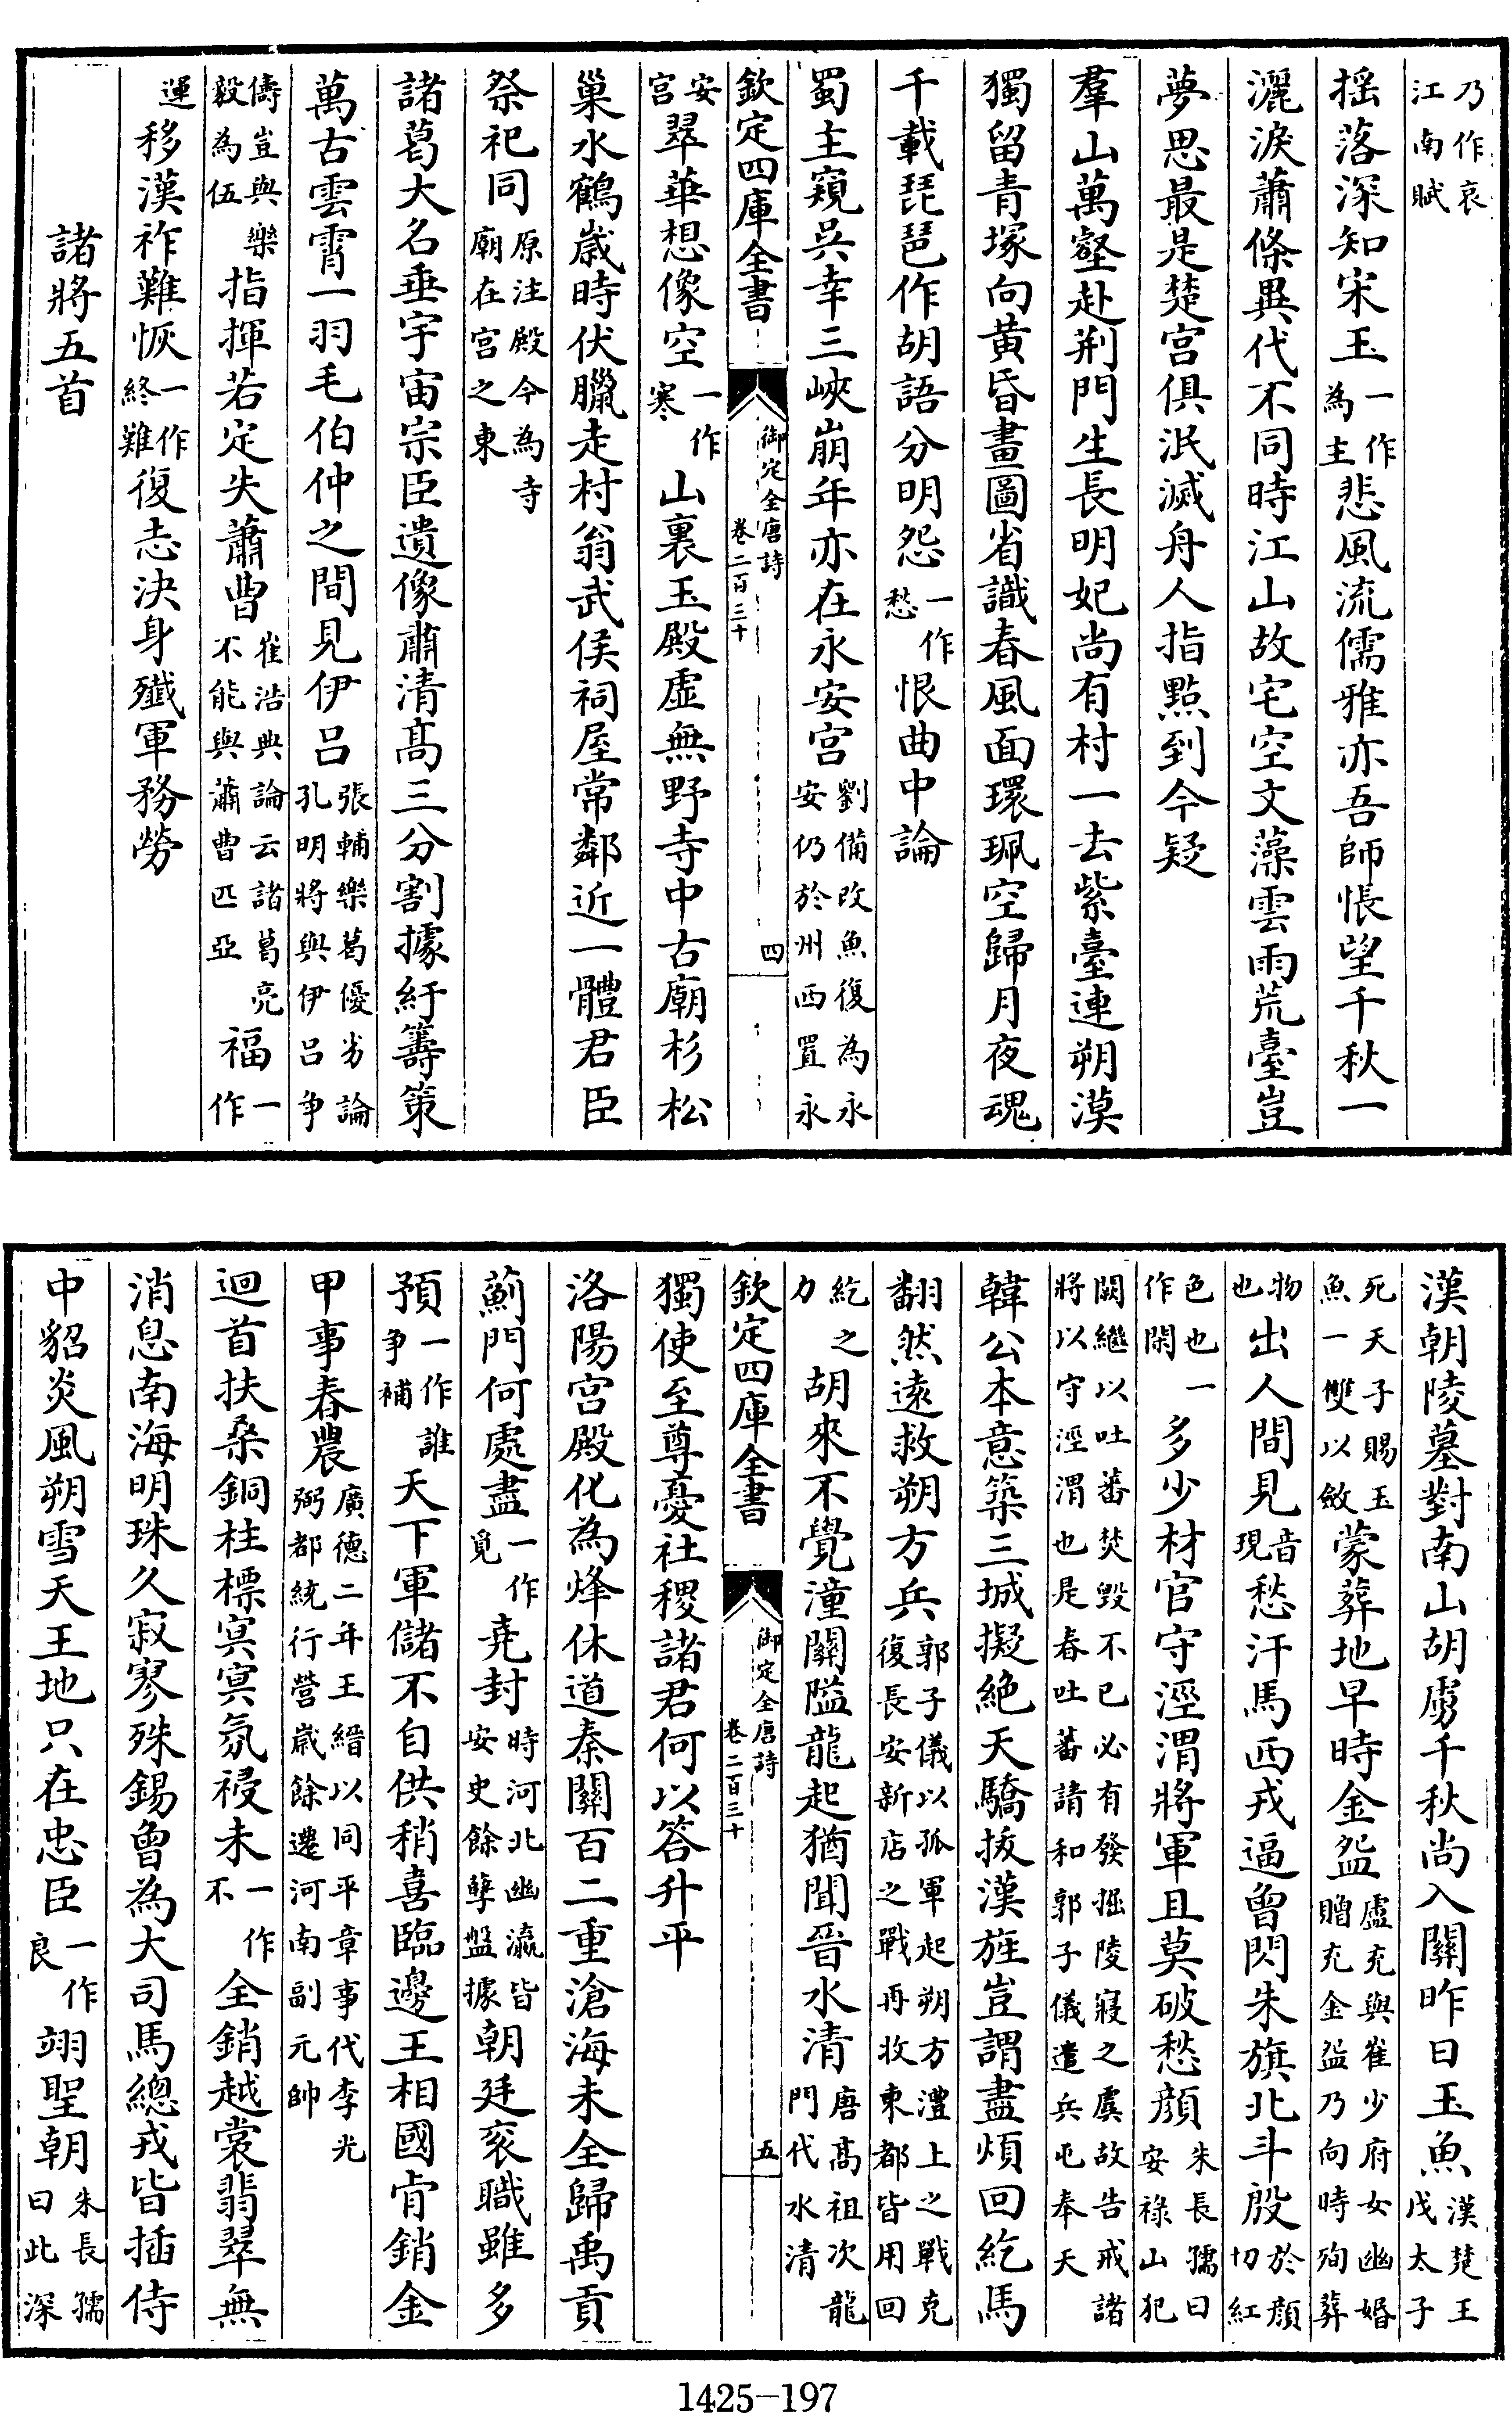 乃作哀江南賦
揺落深知宋玉一作為主悲風流儒雅亦吾師悵望千秋一
灑淚蕭條異代不同時江山故宅空文藻雲雨荒臺豈
夢思最是楚宫俱泯滅舟人指點到今疑
羣山萬壑赴荆門生長明妃尚有村一去紫臺連朔漠
獨留青塚向黄昏畫圖省識春風面環珮空歸月夜魂
千載琵琶作胡語分明怨一作愁恨曲中論
蜀主窺吳幸三峽崩年亦在永安宫劉備改魚復為永安仍於州西置永
欽定四庫全書
御定全唐詩
卷二百三十
四
安宫翠華想像空一作寒山裏玉殿虚無野寺中古廟杉松
巢水鶴歲時伏臘走村翁武侯祠屋常鄰近一體君臣
祭祀同原注殿今為寺廟在宫之東
諸葛大名垂宇宙宗臣遺像肅清髙三分割據紆籌策
萬古雲霄一羽毛伯仲之間見伊吕張輔樂葛優劣論孔明將與伊吕争
儔豈與樂毅為伍指揮若定失蕭曹崔浩典論云諸葛亮不能與蕭曹匹亞福一作
運移漢祚難恢一作終難復志決身殲軍務勞
諸將五首
漢朝陵墓對南山胡虜千秋尚入關昨日玉魚漢楚王戊太子
死天子賜玉魚一雙以斂蒙葬地早時金盌盧充與崔少府女幽婚贈充金盌乃向時殉葬
物也出人間見音現愁汗馬西戎逼曾閃朱旗北斗殷於顔切紅
色也一作閑多少材官守涇渭將軍且莫破愁顔朱長孺曰安禄山犯
闕繼以吐蕃焚毁不已必有發掘陵寢之虞故告戒諸將以守涇渭也是春吐蕃請和郭子儀遣兵屯奉天
韓公本意築三城擬絶天驕拔漢旌豈謂盡煩回紇馬
翻然逺救朔方兵郭子儀以孤軍起朔方澧上之戰克復長安新店之戰再收東都皆用回
紇之力胡來不覺潼關隘龍起猶聞晉水清唐髙祖次龍門代水清
欽定四庫全書
御定全唐詩
卷二百三十
五
獨使至尊憂社稷諸君何以答升平
洛陽宫殿化為烽休道秦關百二重滄海未全歸禹貢
薊門何處盡一作覓堯封時河北幽瀛皆安史餘孽盤據朝廷衮職雖多
預一作誰争補天下軍儲不自供稍喜臨邊王相國肯銷金
甲事春農廣德二年王縉以同平章事代李光弼都統行營歲餘遷河南副元帥
迴首扶桑銅柱標冥冥氛祲未一作不全銷越裳翡翠無
消息南海明珠久寂寥殊錫曾為大司馬總戎皆插侍
中貂炎風朔雪天王地只在忠臣一作良翊聖朝朱長孺曰此深
1425-197